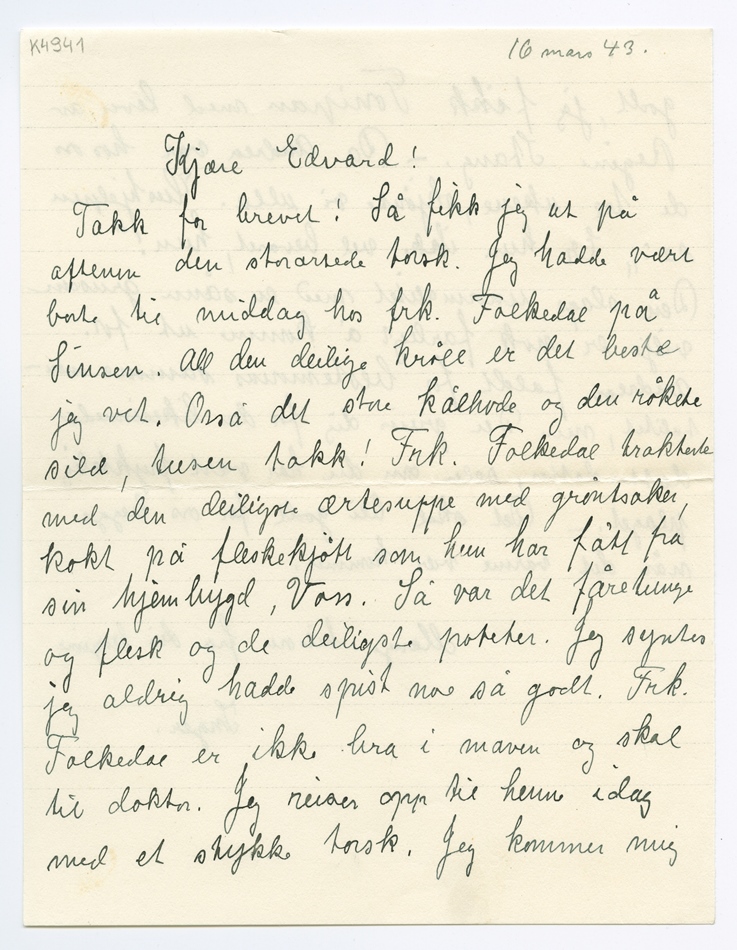 K4941
16 mars 43.
Kjære Edvard!
Takk for brevet! Så fikk jeg ut på
aftenen den storartede torsk. Jeg hadde vært
borte til middag hos frk. Folkedal på
Sinsen. All den deilige krøll er det beste
jeg vet. Også det store kålhode og den røkete
sild, tusen takk! Frk. Folkedal trakterte
med den deiligste ærtesuppe med grøntsaker,
kokt på fleskekjøtt som hun har fått fra
sin hjembygd, Voss. Så var det fåretunge
og flesk og de deiligste poteter. Jeg syntes
jeg aldrig hadde spist noe så godt. Frk.
Folkedal er ikke bra i maven og skal
til doktor. Jeg reiser opp til henne idag
med et stykke torsk. Jeg kommer mig